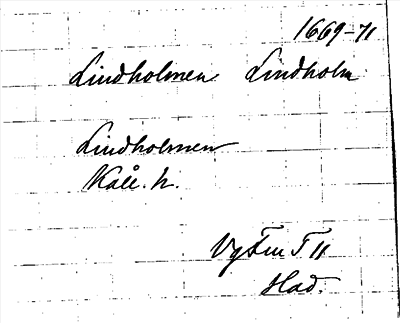 1669-71
Lindholmen Lindholm
Lindholmen
Kåll. h.
Vg Fm T 11
Had.